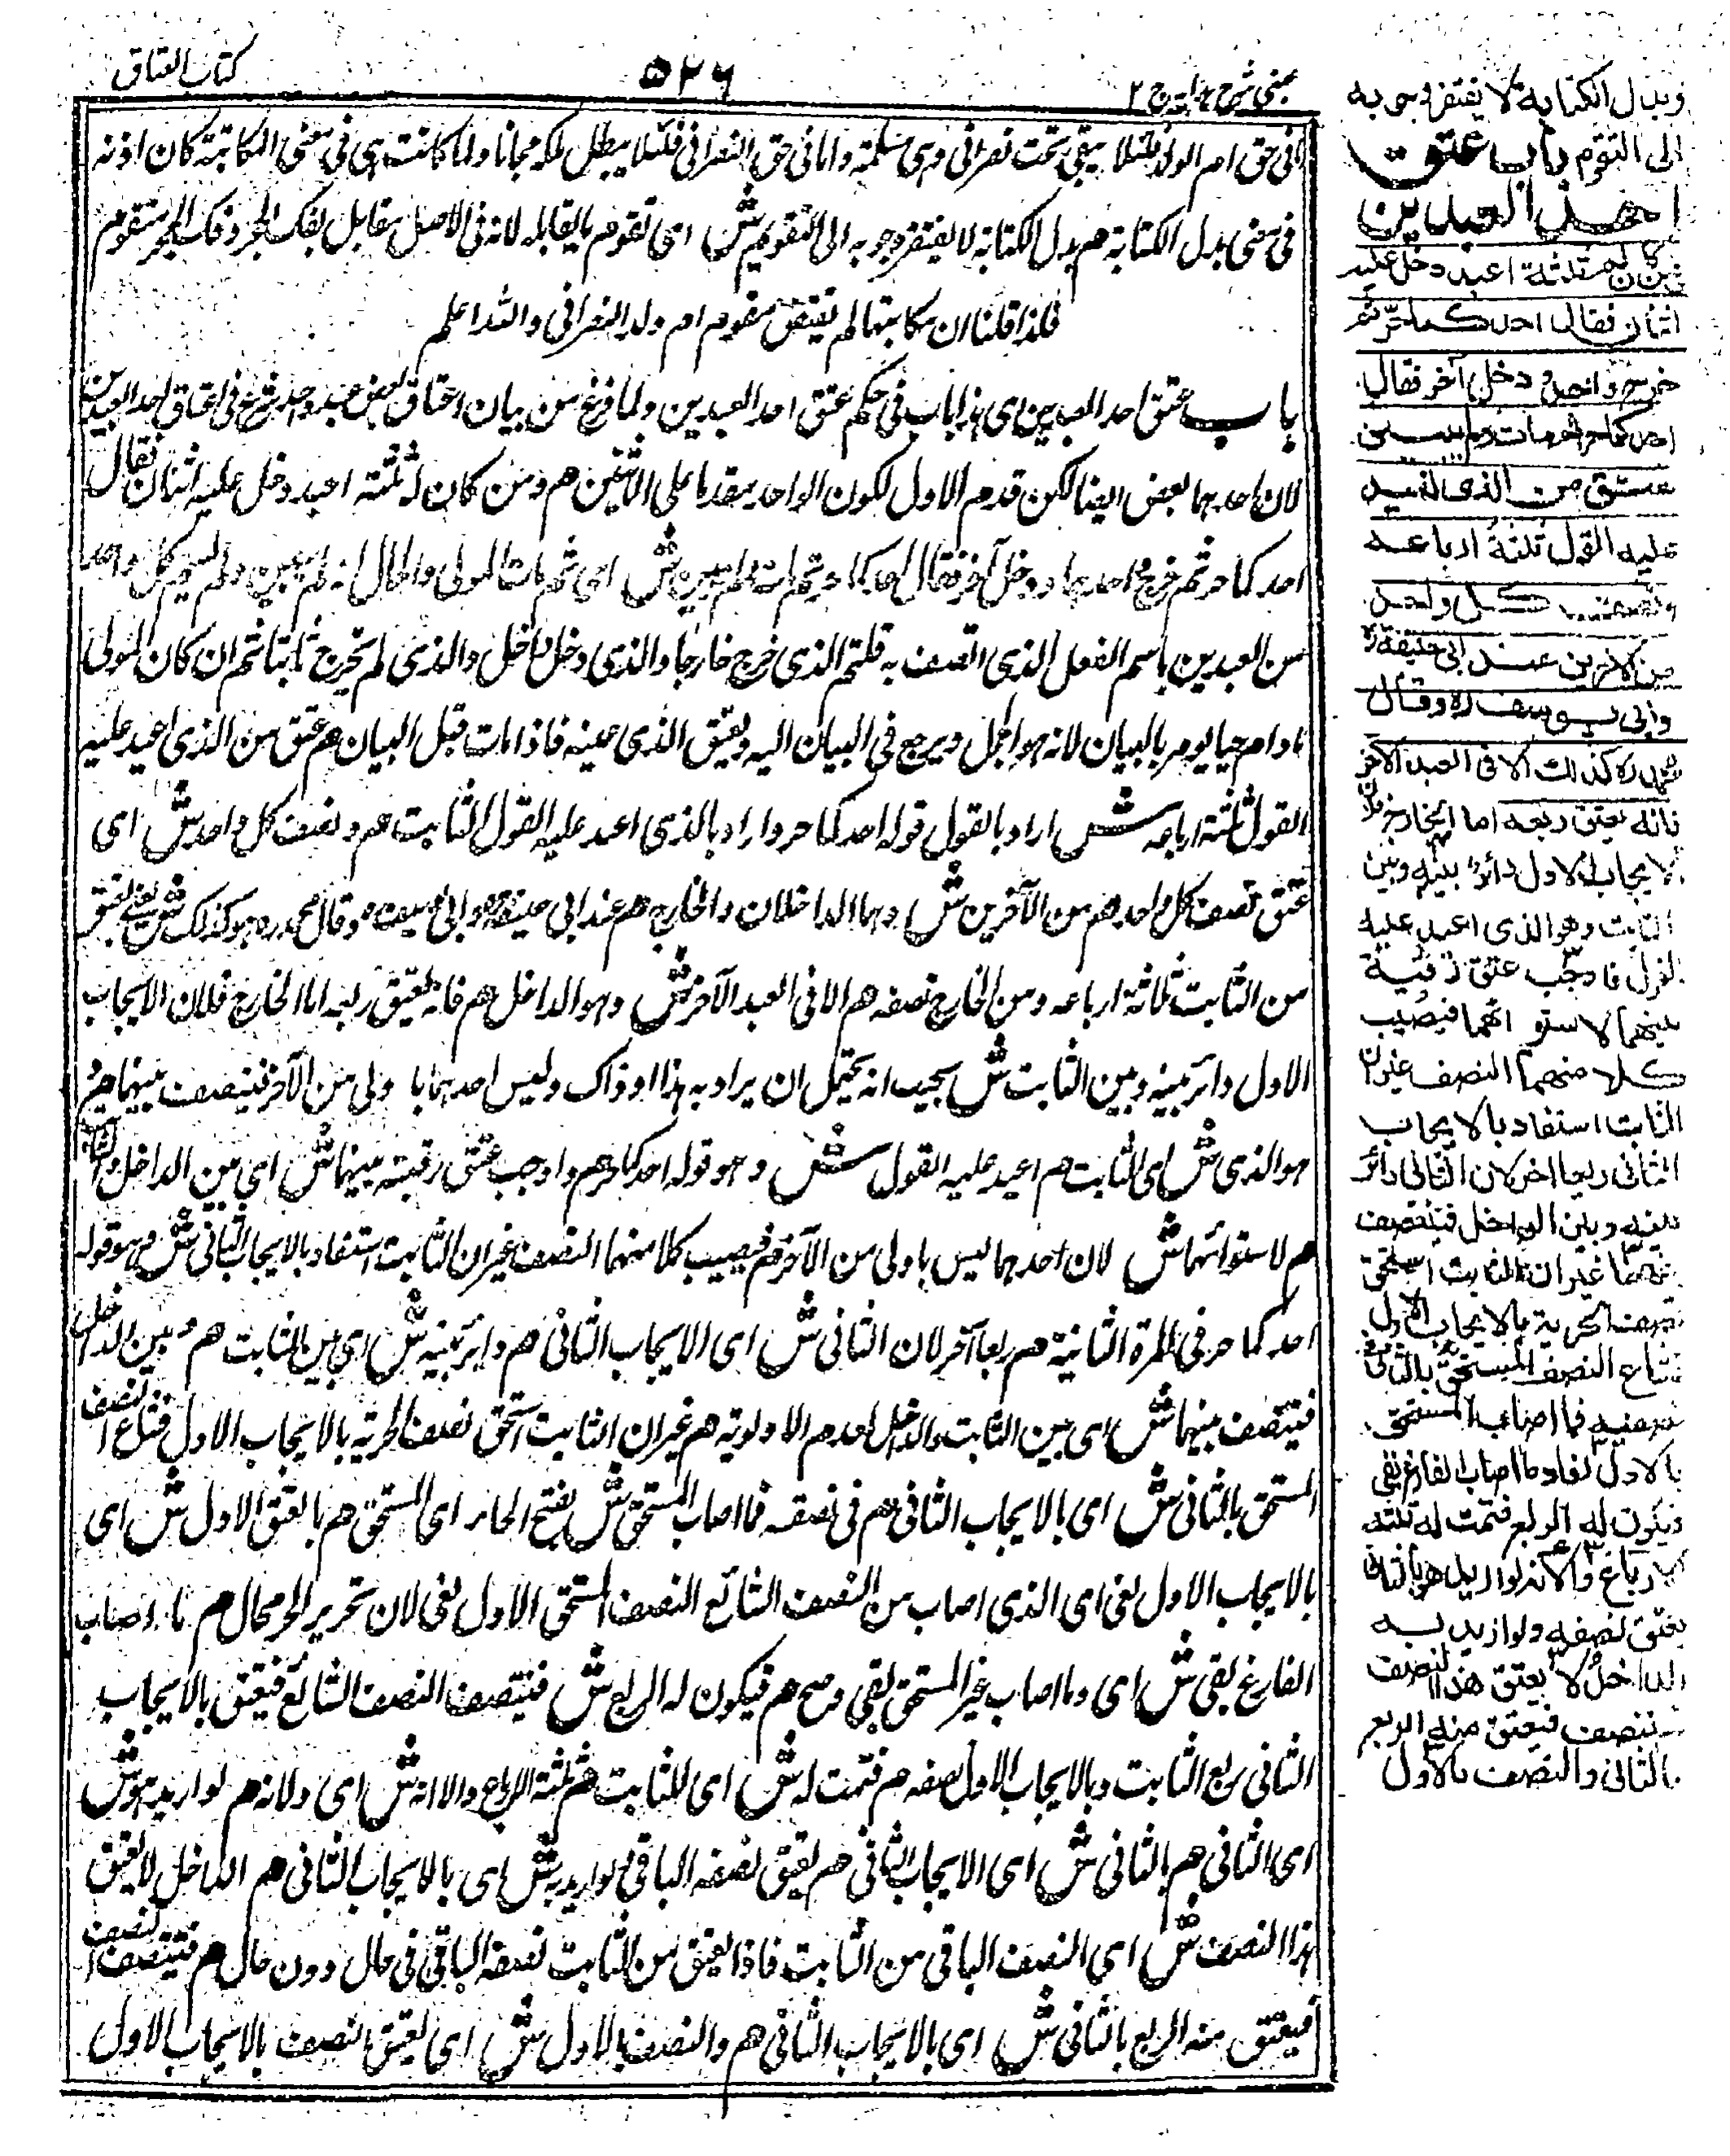 كتاب العتاق
٥٢٦
عينی شرح هدایه ج ٢
فی حق ام الولد فلئلا يبقى تحت نصرانی وهی مسلمة واما فی حق النصرانی فلئلا يبطل ملكه مجانا ولما كانت هی فی معنى المكاتبة كان اذنه
فی معنى بدل الكتابة هم بدل الكتابة لا يفتقر وجوبه الى التقويم ش ای تقوم ما يقابله لانه فی الاصل مقابل بفك الحجر وفك الحجر متقوم
فلذا قلنا ان مكاتبتها لم تفتقر متقوم ام ولد النصرانی والله اعلم
باب عتق احد العبدين ای هذا باب فی حكم عتق احد العبدين ولما فرغ من بيان اعتاق بعض عبد واحد شرع فی اعتاق احد العبدين
لان احدهما بعض ايضا لكن قدم الاول لكون الواحد مقدما على الاثنين هم ومن كان له ثلثة اعبد دخل عليه اثنان فقال
احدكما حر ثم خرج احدهما ودخل آخر فقال احدكما حر ثم مات ولم يبين ش ای ثم مات المولى والحال انه لم يبين ولم كل واحد
من العبدين باسم الفعل الذی اتصف به قلتم الذی خرج خارجا والذی دخل داخل والذی لم يخرج ثابتا ثم ان كان المولى
مادام حيا يومر بالبيان لانه هو المجمل ويرجع فی البيان اليه ويعتق الذی عينه فاذا مات قبل البيان هم عتق من الذی اعيد عليه
القول ثلثة ارباعه ش اراد بالقول قوله احدكما حر واراد بالذی اعيد عليه القول الثابت هم ونصف كل واحد ش ای
عتق نصف كل واحد هم من الآخرين ش وهما الداخلان والخارج هم عند ابی حنيفة وابی يوسف وقال محمد ره هو كذلك ش يعنی يعتق
من الثابت ثلاثة ارباعه ومن الخارج نصفه هم الا فی العبد الآخر ش وهو الداخل هم فانه يعتق ربعه اما الخارج فلان الايجاب
الاول دائر بينه وبين الثابت ش بحيث انه يحتمل ان يراد به هذا او ذاك وليس احدهما باولى من الآخر فيتنصف بينهما هم و
هو الذی ش ای الثابت هم اعيد عليه القول ش وهو قوله احدكما حر هم واوجب عتق رقبته بينهما ش ای بين الداخل والثابت
هم لاستوائهما ش لان احدهما ليس باولى من الآخر هم فيصيب كلا منهما النصف غير ان الثابت استفاد بالايجاب الثانی ش وهو قوله
احدكما حر فی المرة الثانية هم ربعا آخر لان الثانی ش ای الايجاب الثانی هم دائر بينه ش ای بين الثابت هم وبين الداخل
فيتنصف بينهما ش ای بين الثابت والداخل لعدم الاولوية هم غير ان الثابت استحق نصف الحرية بالايجاب الاول فشاع النصف
المستحق بالثانی ش ای بالايجاب الثانی هم فی نصفيه فما اصاب المستحق ش بفتح الحاء ای المستحق هم بالعتق الاول ش ای
بالايجاب الاول لغى ای الذی اصاب من النصف الشائع النصف المستحق الاول لغى لان تحرير الحر محال هم ما اصاب
الفارغ بقی ش ای وما اصاب غير المستحق بقی وصح هم فيكون له الربع ش فيتنصف النصف الشائع فيعتق بالايجاب
الثانی ربع الثابت وبالايجاب الاول نصفه هم فتمت له ش ای للثابت هم ثلثة الارباع والا انه ش ای ولانه هم لو اريد هو ش
ای الثانی هم بالثانی ش ای الايجاب الثانی هم يعتق نصفه الباقی ولو اريد به ش ای بالايجاب الثانی هم الداخل لا يعتق
هذا النصف ش ای النصف الباقی من الثابت فاذا يعتق من الثابت نصفه الباقی فی حال دون حال هم فيتنصف النصف
فيعتق منه الربع بالثانی ش ای بالايجاب الثانی هم والنصف بالاول ش ای لعتق النصف بالايجاب الاول
وبدل الكتابة لا يفتقر وجوبه
الى التقوم باب عتق
احد العبدين
ومن كان له ثلثة اعبد دخل عليه
اثنان فقال احدكما حر ثم
خرج واحد ودخل آخر فقال
احدكما حر ثم مات ولم يبين
عتق من الذی اعيد
عليه القول ثلثة ارباعه
ونصف كل واحد
من الآخرين عند ابی حنيفة ره
وابی يوسف ره وقال
محمد ره كذلك الا فی العبد الآخر
فانه يعتق ربعه اما الخارج فلان
الايجاب الاول دائر بينه وبين
الثابت وهو الذی اعيد عليه
القول فاوجب عتق رقبة
بينهما لاستوائهما فيصيب
كلا منهما النصف غير ان
الثابت استفاد بالايجاب
الثانی ربعا آخر لان الثانی دائر
بينه وبين الداخل فيتنصف
بينهما غير ان الثابت استحق
نصف الحرية بالايجاب الاول
فشاع النصف المستحق بالثانی فی
نصفيه فما اصاب المستحق
بالاول لغا وما اصاب الفارغ بقی
فيكون له الربع فتمت له ثلثة
الارباع ولانه لو اريد هو بالثانی
يعتق نصفه ولو اريد به
الداخل لا يعتق هذا النصف
فيتنصف فيعتق منه الربع
بالثانی والنصف بالاول